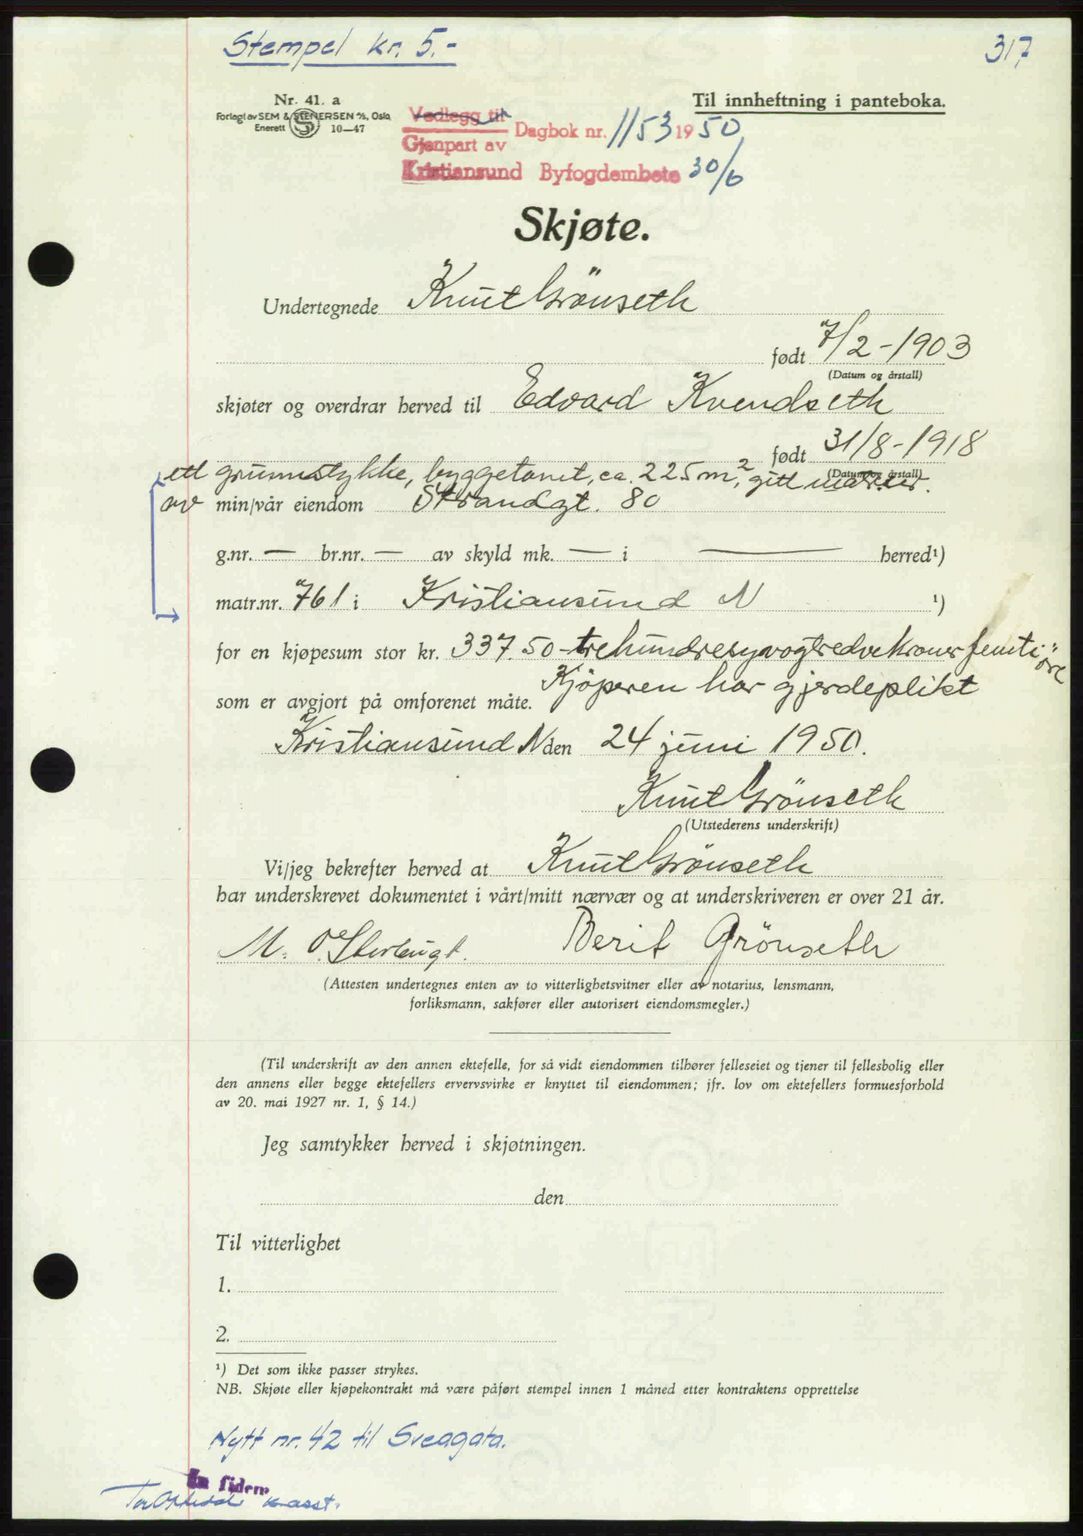 Stempel kr. 5.-
317
Nr. 41. a
Forlagt av SEM & STENERSEN A/S, Oslo
Enerett S 10—47
Til innheftning i panteboka.
Vedlegg til
Gjenpart av
Dagbok nr. 1153 1950
Kristiansund Byfogdembete 30/6
Skjøte.
Undertegnede Knut Grönseth
født 7/2-1903
(Datum og årstall)
skjøter og overdrar herved til Edvard Kvendseth
født 31/8-1918
(Datum og årstall)
ett grunnstykke, byggetomt, ca. 225 m², gitt
av min/vår eiendom Strandgt. 80
g.nr. — br.nr. — av skyld mk. — i — herred¹)
matr.nr. 761 i Kristiansund N ¹)
for en kjøpesum stor kr. 337.50 - trehundresyvogtredve kroner femti öre
som er avgjort på omforenet måte. Kjöperen har gjerdeplikt
Kristiansund N den 24 juni 1950.
Knut Grönseth
(Utstederens underskrift)
Vi/jeg bekrefter herved at Knut Grönseth
har underskrevet dokumentet i vårt/mitt nærvær og at underskriveren er over 21 år.
M. Berit Grönseth
(Attesten undertegnes enten av to vitterlighetsvitner eller av notarius, lensmann,
forliksmann, sakfører eller autorisert eiendomsmegler.)
(Til underskrift av den annen ektefelle, for så vidt eiendommen tilhører felleseiet og tjener til fellesbolig eller
den annens eller begge ektefellers ervervsvirke er knyttet til eiendommen; jfr. lov om ektefellers formuesforhold
av 20. mai 1927 nr. 1, § 14.)
Jeg samtykker herved i skjøtningen.
den
Til vitterlighet
1.
2.
¹) Det som ikke passer strykes.
NB. Skjøte eller kjøpekontrakt må være påført stempel innen 1 måned etter kontraktens opprettelse
Nytt nr. 42 til Sveagata.
In fidem